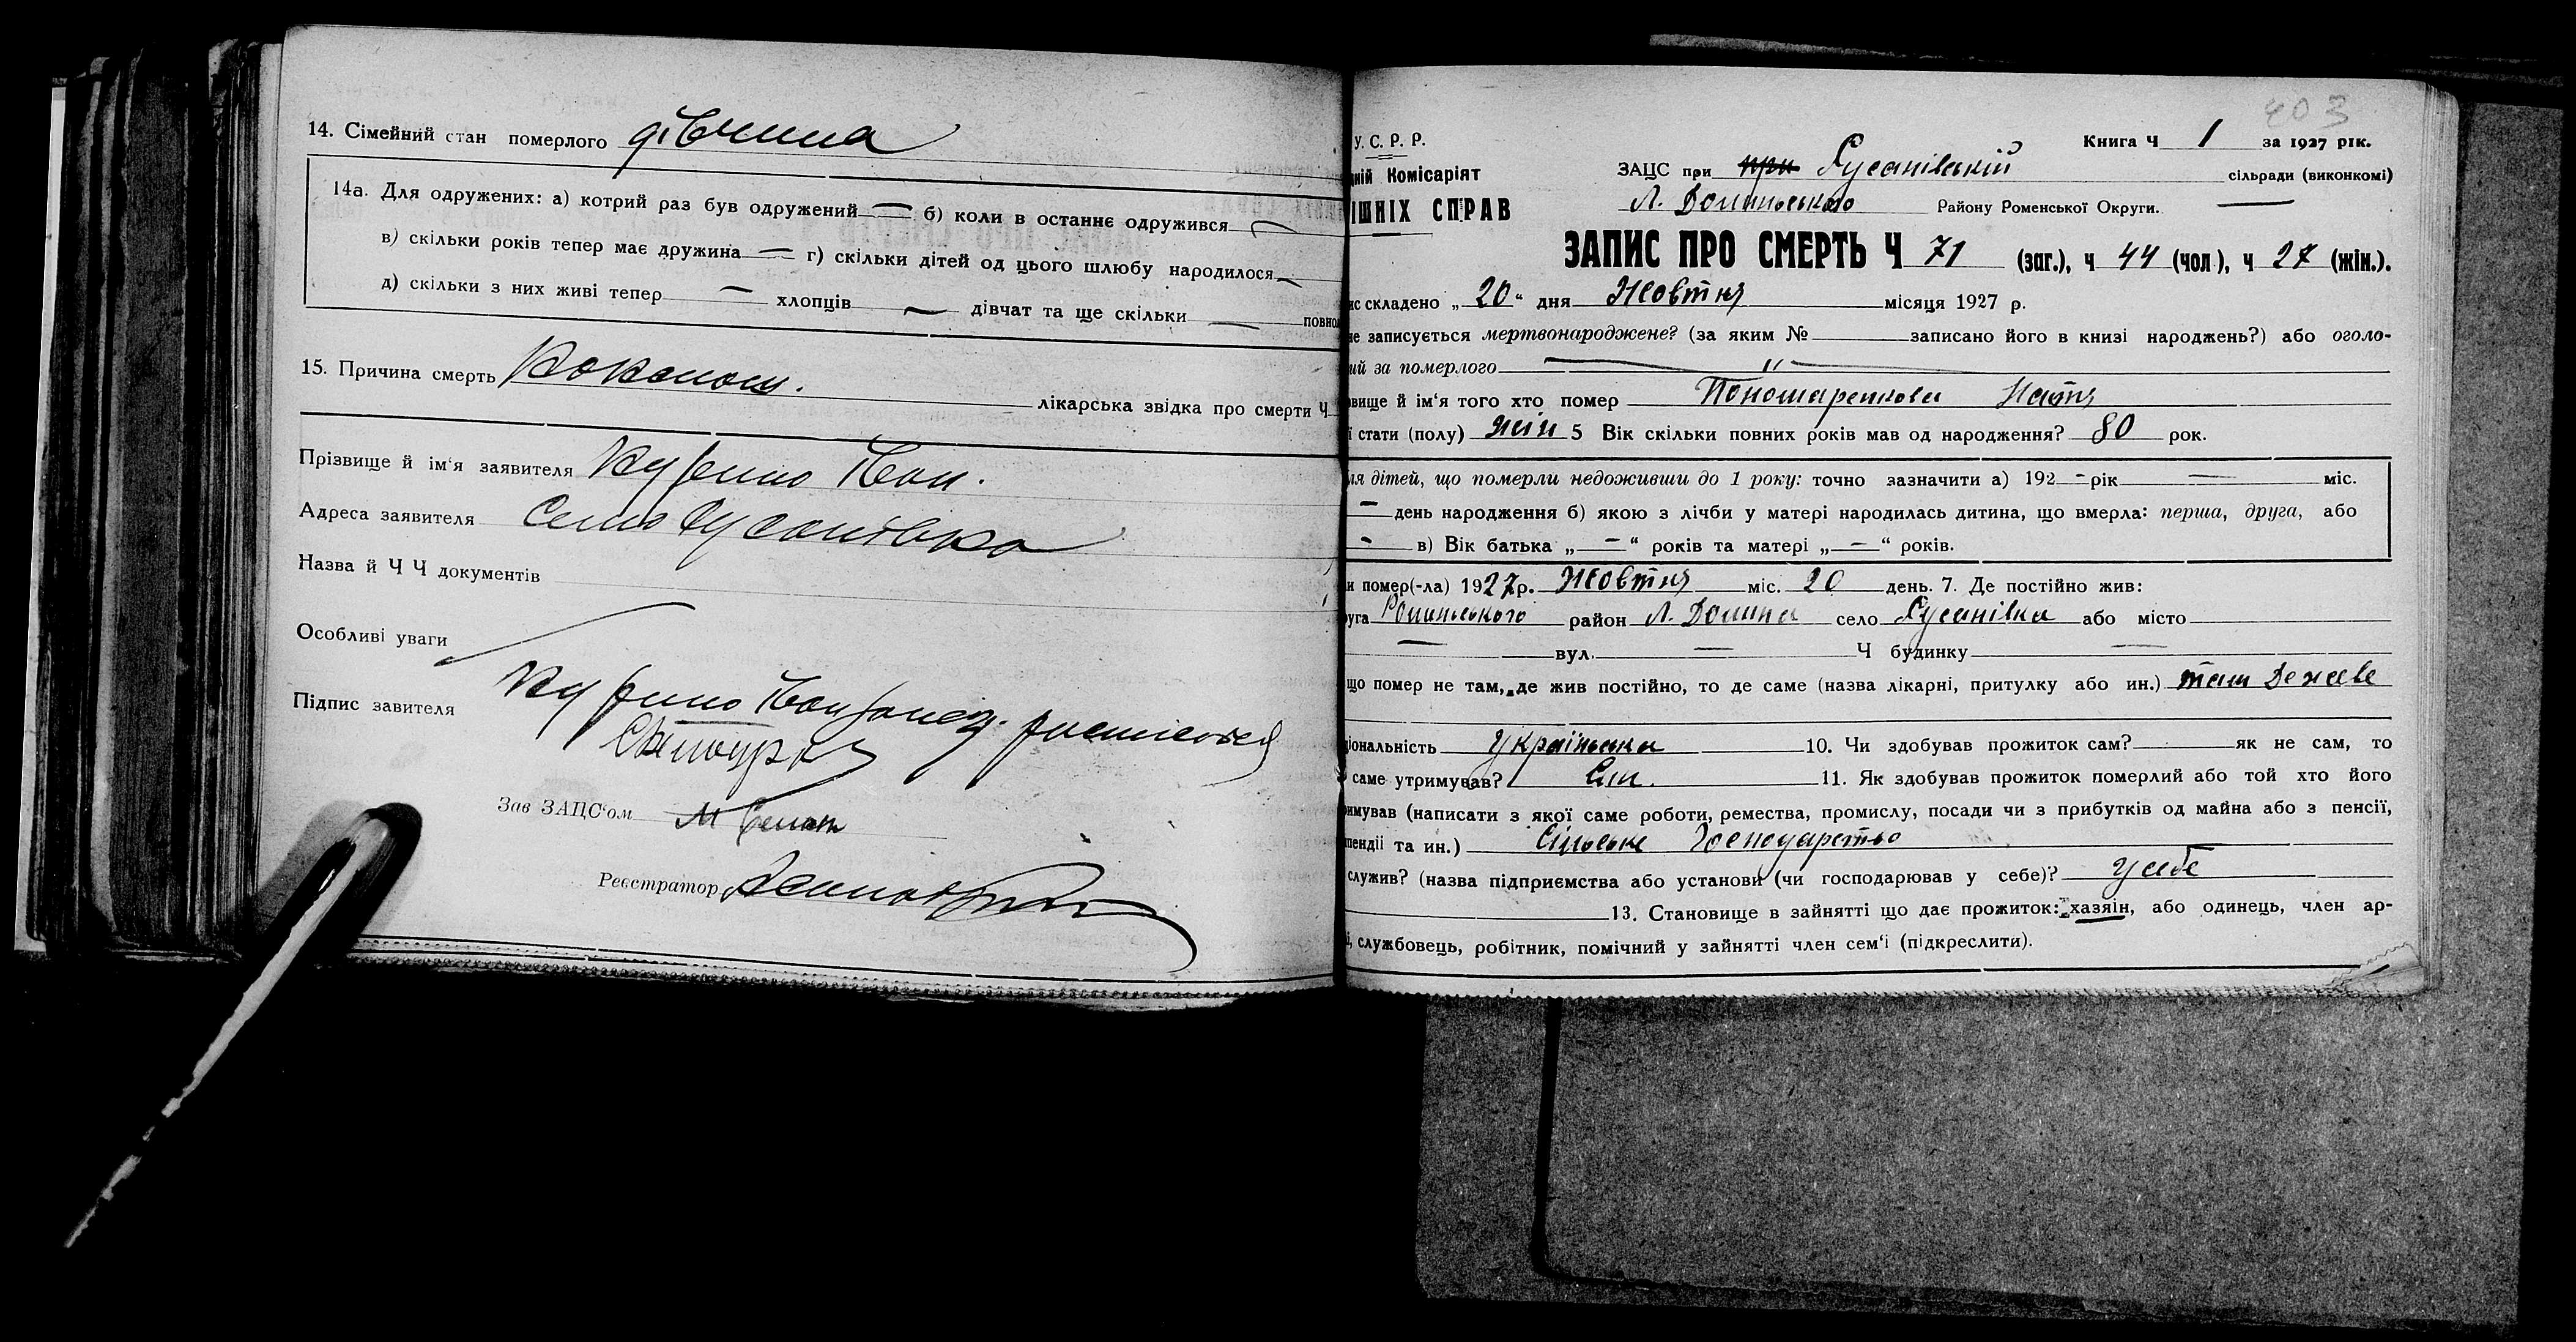 14. Сімейний стан померлого дівчина
14а. Для одружених: а) котрий раз був одружений — б) коли в останнє одружився —
в) скільки років тепер має дружина — г) скільки дітей од цього шлюбу народилося —
д) скільки з них живі тепер — хлопців — дівчат та ще скільки — повно
15. Причина смерть Коклюш.
лікарська звідка про смерти Ч
Прізвище й ім‘я заявителя Курило Іван.
Адреса заявителя Село Русанівка
Назва й Ч Ч документів
Особливі уваги
Підпис завителя Курило Іван
Зав ЗАЦС‘ом
Реєстратор
403
У. С. Р. Р.
Книга Ч 1 за 1927 рік.
дній Комісаріят
ЗАЦС при при Русанівській сільради (виконкомі)
ІШНІХ СПРАВ
Л. Долинського Району Роменської Округи. —
ЗАПИС ПРО СМЕРТЬ Ч 71 (заг.), ч 44 (чол), ч 27 (жін.).
ис складено „20“ дня Жовтня місяця 1927 р.
не записується мертвонароджене? (за яким № записано його в книзі народжень?) або оголо-
ий за померлого — " —
звище й ім‘я того хто помер Пономаренкова Настя
ї стати (полу) жін 5 Вік скільки повних років мав од народження? 80 рок.
ля дітей, що померли недоживши до 1 року: точно зазначити а) 192 — рік — міс.
— день народження б) якою з лічби у матері народилась дитина, що вмерла: перша, друга, або
— в) Вік батька „—“ років та матері „—“ років.
и помер(-ла) 1927р. Жовтня міс. 20 день. 7. Де постійно жив:
уга Роминського район Л. Долина село Русанівка або місто
— вул. — Ч будинку —
що помер не там, де жив постійно, то де саме (назва лікарні, притулку або ин.) там де живе
ціональність Українська 10. Чи здобував прожиток сам? як не сам, то
саме утримував? Син. 11. Як здобував прожиток померлий або той хто його
имував (написати з якої саме роботи, ремества, промислу, посади чи з прибутків од майна або з пенсії,
пендії та ин.) Сільське Господарство
служив? (назва підприємства або установи (чи господарював у себе)? у себе
13. Становище в зайнятті що дає прожиток: хазяїн, або одинець, член ар-
і, службовець, робітник, помічний у зайнятті член сем‘ї (підкреслити).